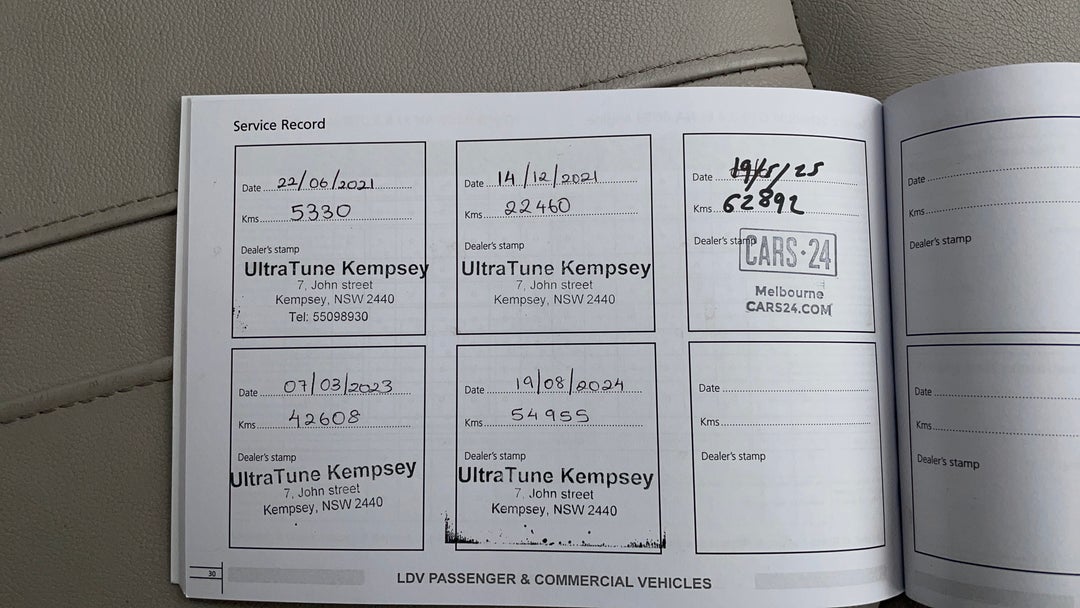 Service Record
Date 22/06/2021
Kms 5330
Dealer's stamp
UltraTune Kempsey
7, John street
Kempsey, NSW 2440
Tel: 55098930
Date 14/12/2021
Kms 22460
Dealer's stamp
UltraTune Kempsey
7, John street
Kempsey, NSW 2440
Date 19/5/25
Kms 62892
Dealer's stamp
CARS·24
Melbourne
CARS24.COM
Date 07/03/2023
Kms 42608
Dealer's stamp
UltraTune Kempsey
7, John street
Kempsey, NSW 2440
Date 19/08/2024
Kms 54955
Dealer's stamp
UltraTune Kempsey
7, John street
Kempsey, NSW 2440
Date
Kms
Dealer's stamp
30
LDV PASSENGER & COMMERCIAL VEHICLES
Date
Kms
Dealer's stamp
Date
Kms
Dealer's stamp